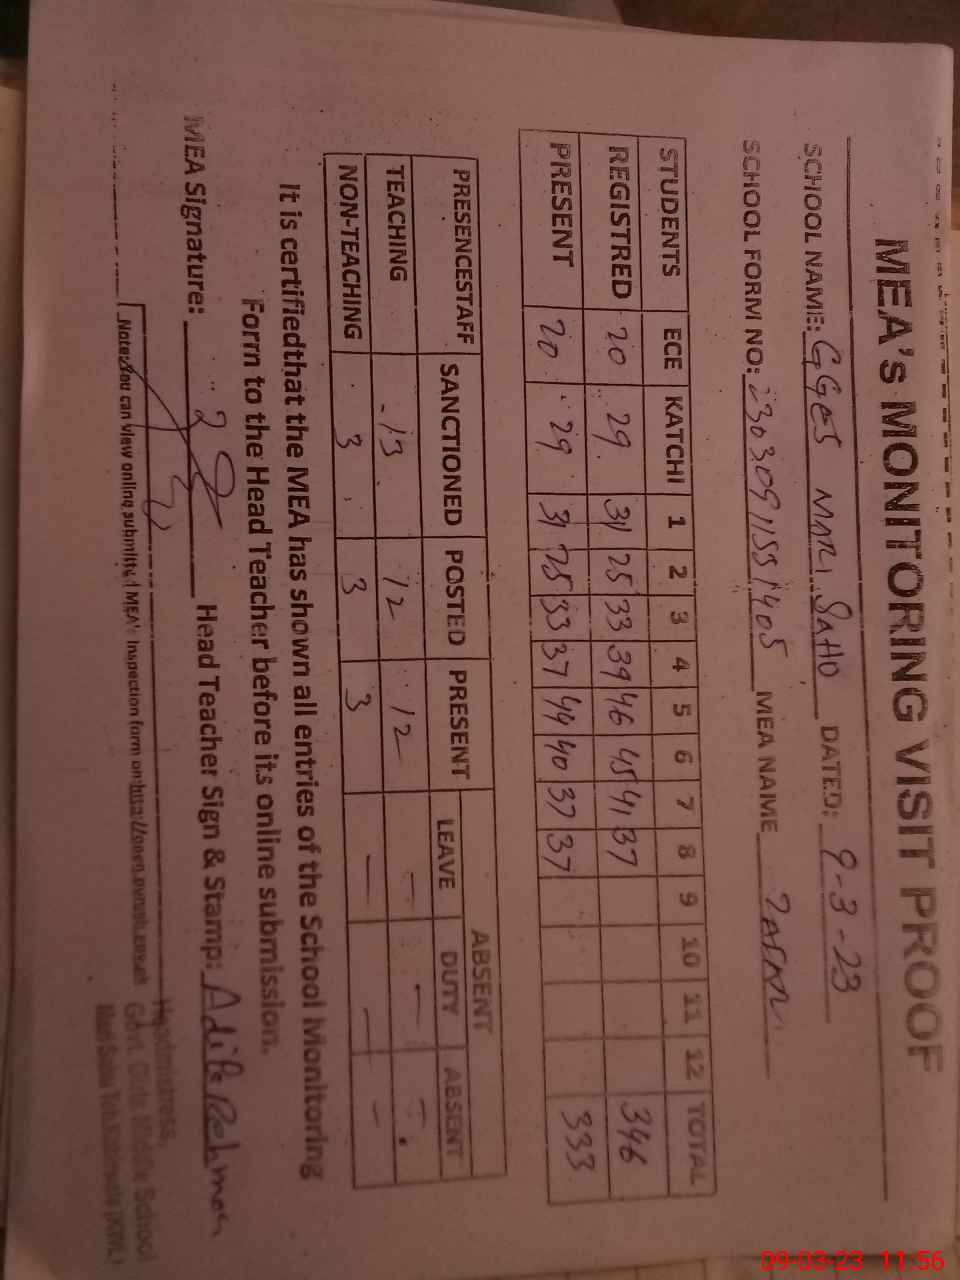 MEA's MONITORING VISIT PROOF
SCHOOL NAME: GGES MARI SAHO DATED: 9-3-23
SCHOOL FORM NO: 23030911551405 MEA NAME
STUDENTS ECE KATCHI 1 2 3 4 5 6 7 8 9 10 11 12 TOTAL
REGISTRED 20 29 31 25 33 39 46 45 41 37 346
PRESENT 20 29 31 25 33 37 44 40 37 37 333
PRESENCESTAFF SANCTIONED POSTED PRESENT ABSENT
LEAVE DUTY ABSENT
TEACHING 13 12 12 - - -
NON-TEACHING 3 3 3 - - -
It is certifiedthat the MEA has shown all entries of the School Monitoring
Form to the Head Teacher before its online submission.
MEA Signature: Head Teacher Sign & Stamp: Adila Rehman
Note: You can view online submitted MEA's Inspection form on
Headmistress,
Govt. Girls Middle School
Mari Saho Teh Kabirwala (KWL)
09-03-23 11:56